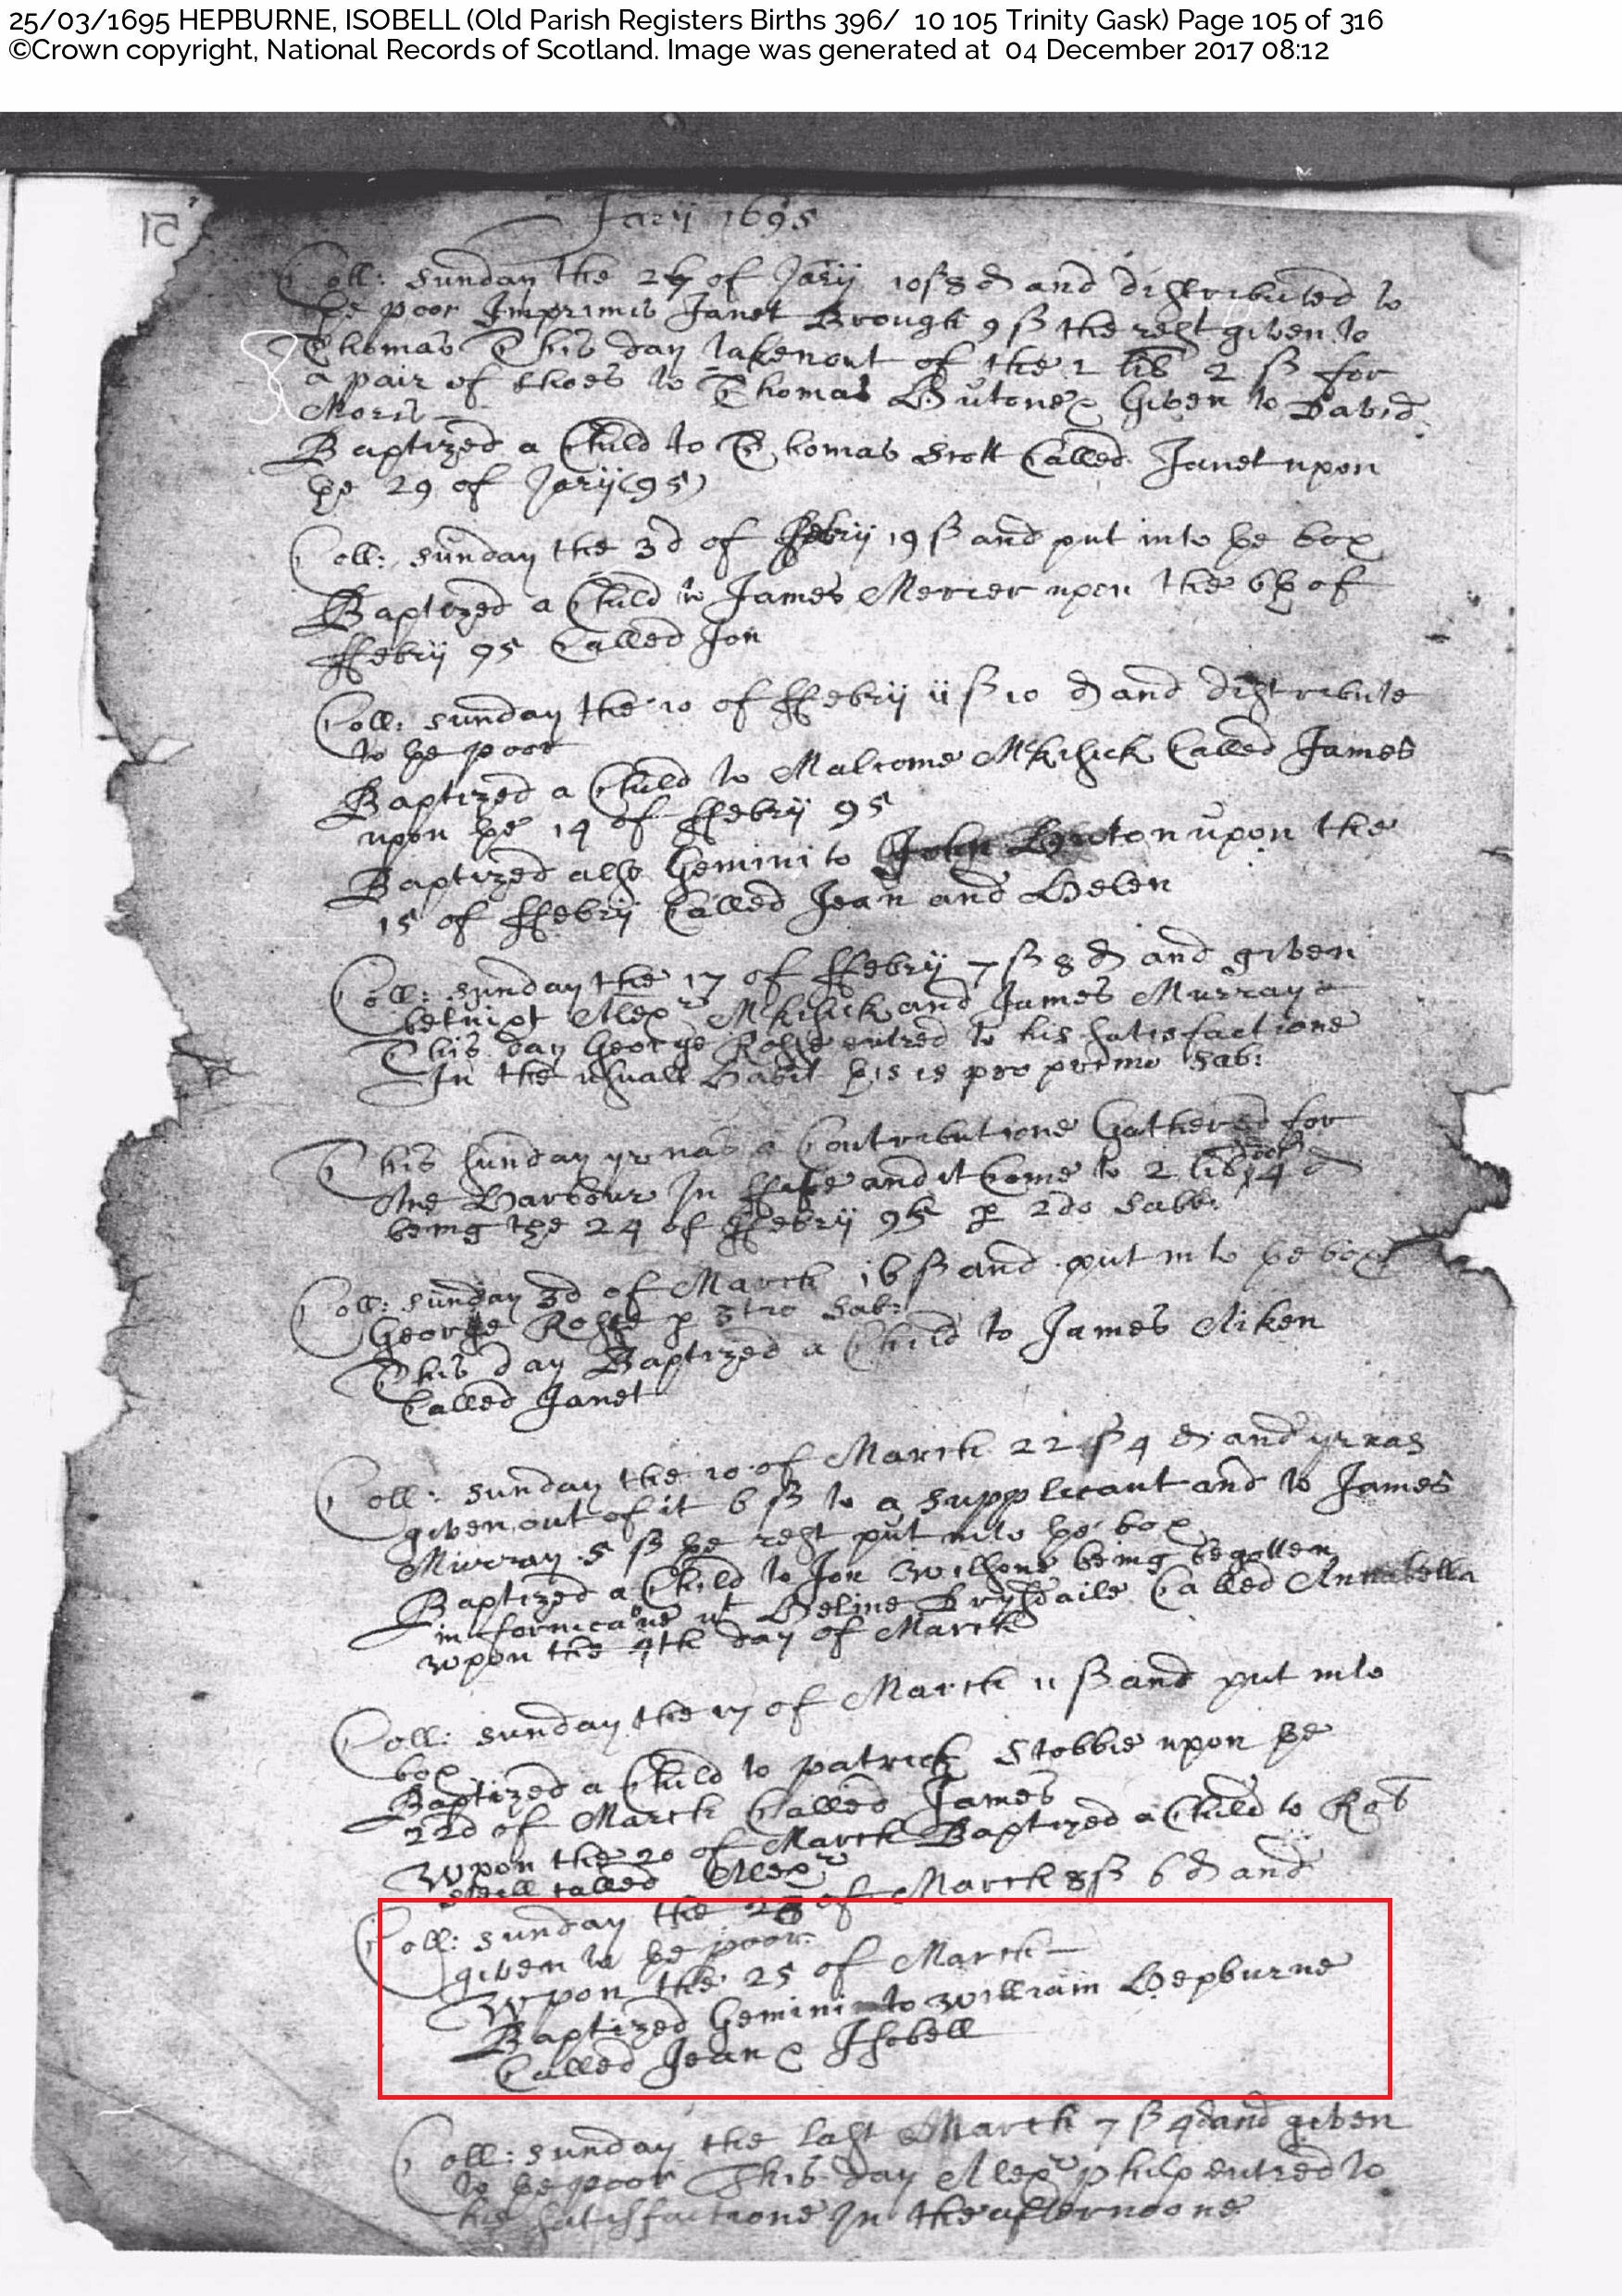 25/03/1695 HEPBURNE, ISOBELL (Old Parish Registers Births 396/ 10 105 Trinity Gask) Page 105 of 316
©Crown copyright, National Records of Scotland. Image was generated at 04 December 2017 08:12
Jarij 1695
Coll: sunday the of Jarij 10ß 8 d and distributed to
þe poor Imprimis Janet Brough 9 ß the rest given to
Thomas This day taken out of the 2 lib 2 ß for
a pair of shoes to Thomas Given to David
Moris
Baptized a Child to Thomas Scott Called Janet upon
þe 29 of Jarij (95)
Coll: sunday the 3d of ffebrij 19 ß and put into þe box
Baptized a Child to James Mercer upon the 6þ of
ffebrij 95 Called Jon
Coll: sunday the 10 of ffebrij 11 ß 10 d and distribute
to þe poor
Baptized a Child to Malcome Called James
upon þe 14 of ffebrij 95
Baptized also Gemini to John upon the
15 of ffebrij Called Jean and Helen
Coll: sunday the 17 of ffebrij 7 ß 8 d and given
betuixt Alexr and James Murray
This day George entred to his satisfactione
In the usuall Habit þis is pro primo Sab:
This sunday yr was a Contributione Gathered for
Ane Harbour In ffife and it Come to 2 lib 4 d
being the 24 of ffebrij 95 p 2do Sabb:
Coll: sunday 3d of March 16 ß and put into þe box
George p 3tio Sab:
This day Baptized a Child to James Aiken
Called Janet
Coll: sunday the 10 of March 22 ß 4 d and yr was
given out of it 6 ß to a supplicant and to James
Murray 5 ß þe rest put into þe box
Baptized a Child to Jon Wilsone being begotten
in fornicaone wt Heline Called Annabella
Wpon the day of March
Coll: sunday the 17 of March 11 ß and put into
box
Baptized a Child to patrick Stobbie upon þe
22d of March Called James
Wpon the 20 of March Baptized a Child to Rob
called Alexr
Coll: sunday the of March 8ß 6 d and
given to þe poor
Wpon the 25 of March
Baptized Gemini to William Hepburne
Called Jean & Isobell
Coll: sunday the last March 7 ß 4d and given
to þe poor This day Alexr philp entred to
his satisfactione In the afternoone